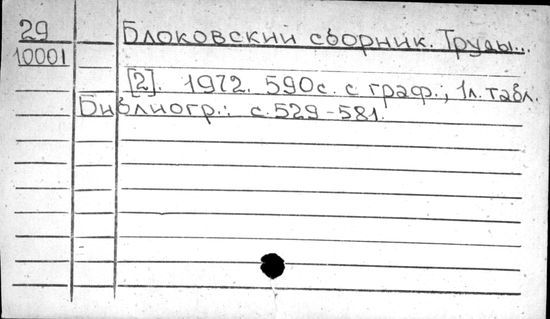 29 Блоковский сборник. Труды...
10001
[2]. 1972. 590с. с граф.; 1л. табл.
Библиогр.: с. 529-581.